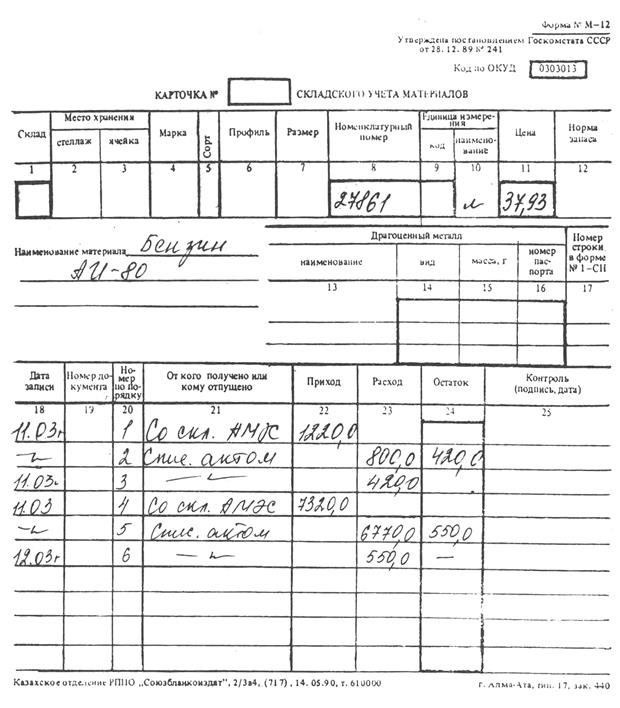 Форма № М-12
Утверждена постановлением Госкомстата СССР
от 28. 12. 89 № 241
Код по ОКУД 0303013
КАРТОЧКА № СКЛАДСКОГО УЧЕТА МАТЕРИАЛОВ
Склад Место хранения Марка Сорт Профиль Размер Номенклатурный номер Единица измерения Цена Норма запаса
стеллаж ячейка код наименование
1 2 3 4 5 6 7 8 9 10 11 12
27861 л 37,93
Наименование материала Бензин
АИ-80
Драгоценный металл Номер строки в форме № 1-СН
наименование вид масса, г номер паспорта
13 14 15 16 17
Дата записи Номер документа Номер по порядку От кого получено или кому отпущено Приход Расход Остаток Контроль (подпись, дата)
18 19 20 21 22 23 24 25
11.03г 1 Со скл. АМЭС 1220,0
-"- 2 Спис. актом 800,0 420,0
11.03г 3 -"- 420,0
11.03 4 Со скл. АМЭС 7320,0
-"- 5 Спис. актом 6770,0 550,0
12.03г 6 -"- 550,0 —
Казахское отделение РППО „Союзбланкоиздат", 2/3в4, (717), 14. 05.90, т. 610000
г. Алма-Ата, тип. 17, зак. 440